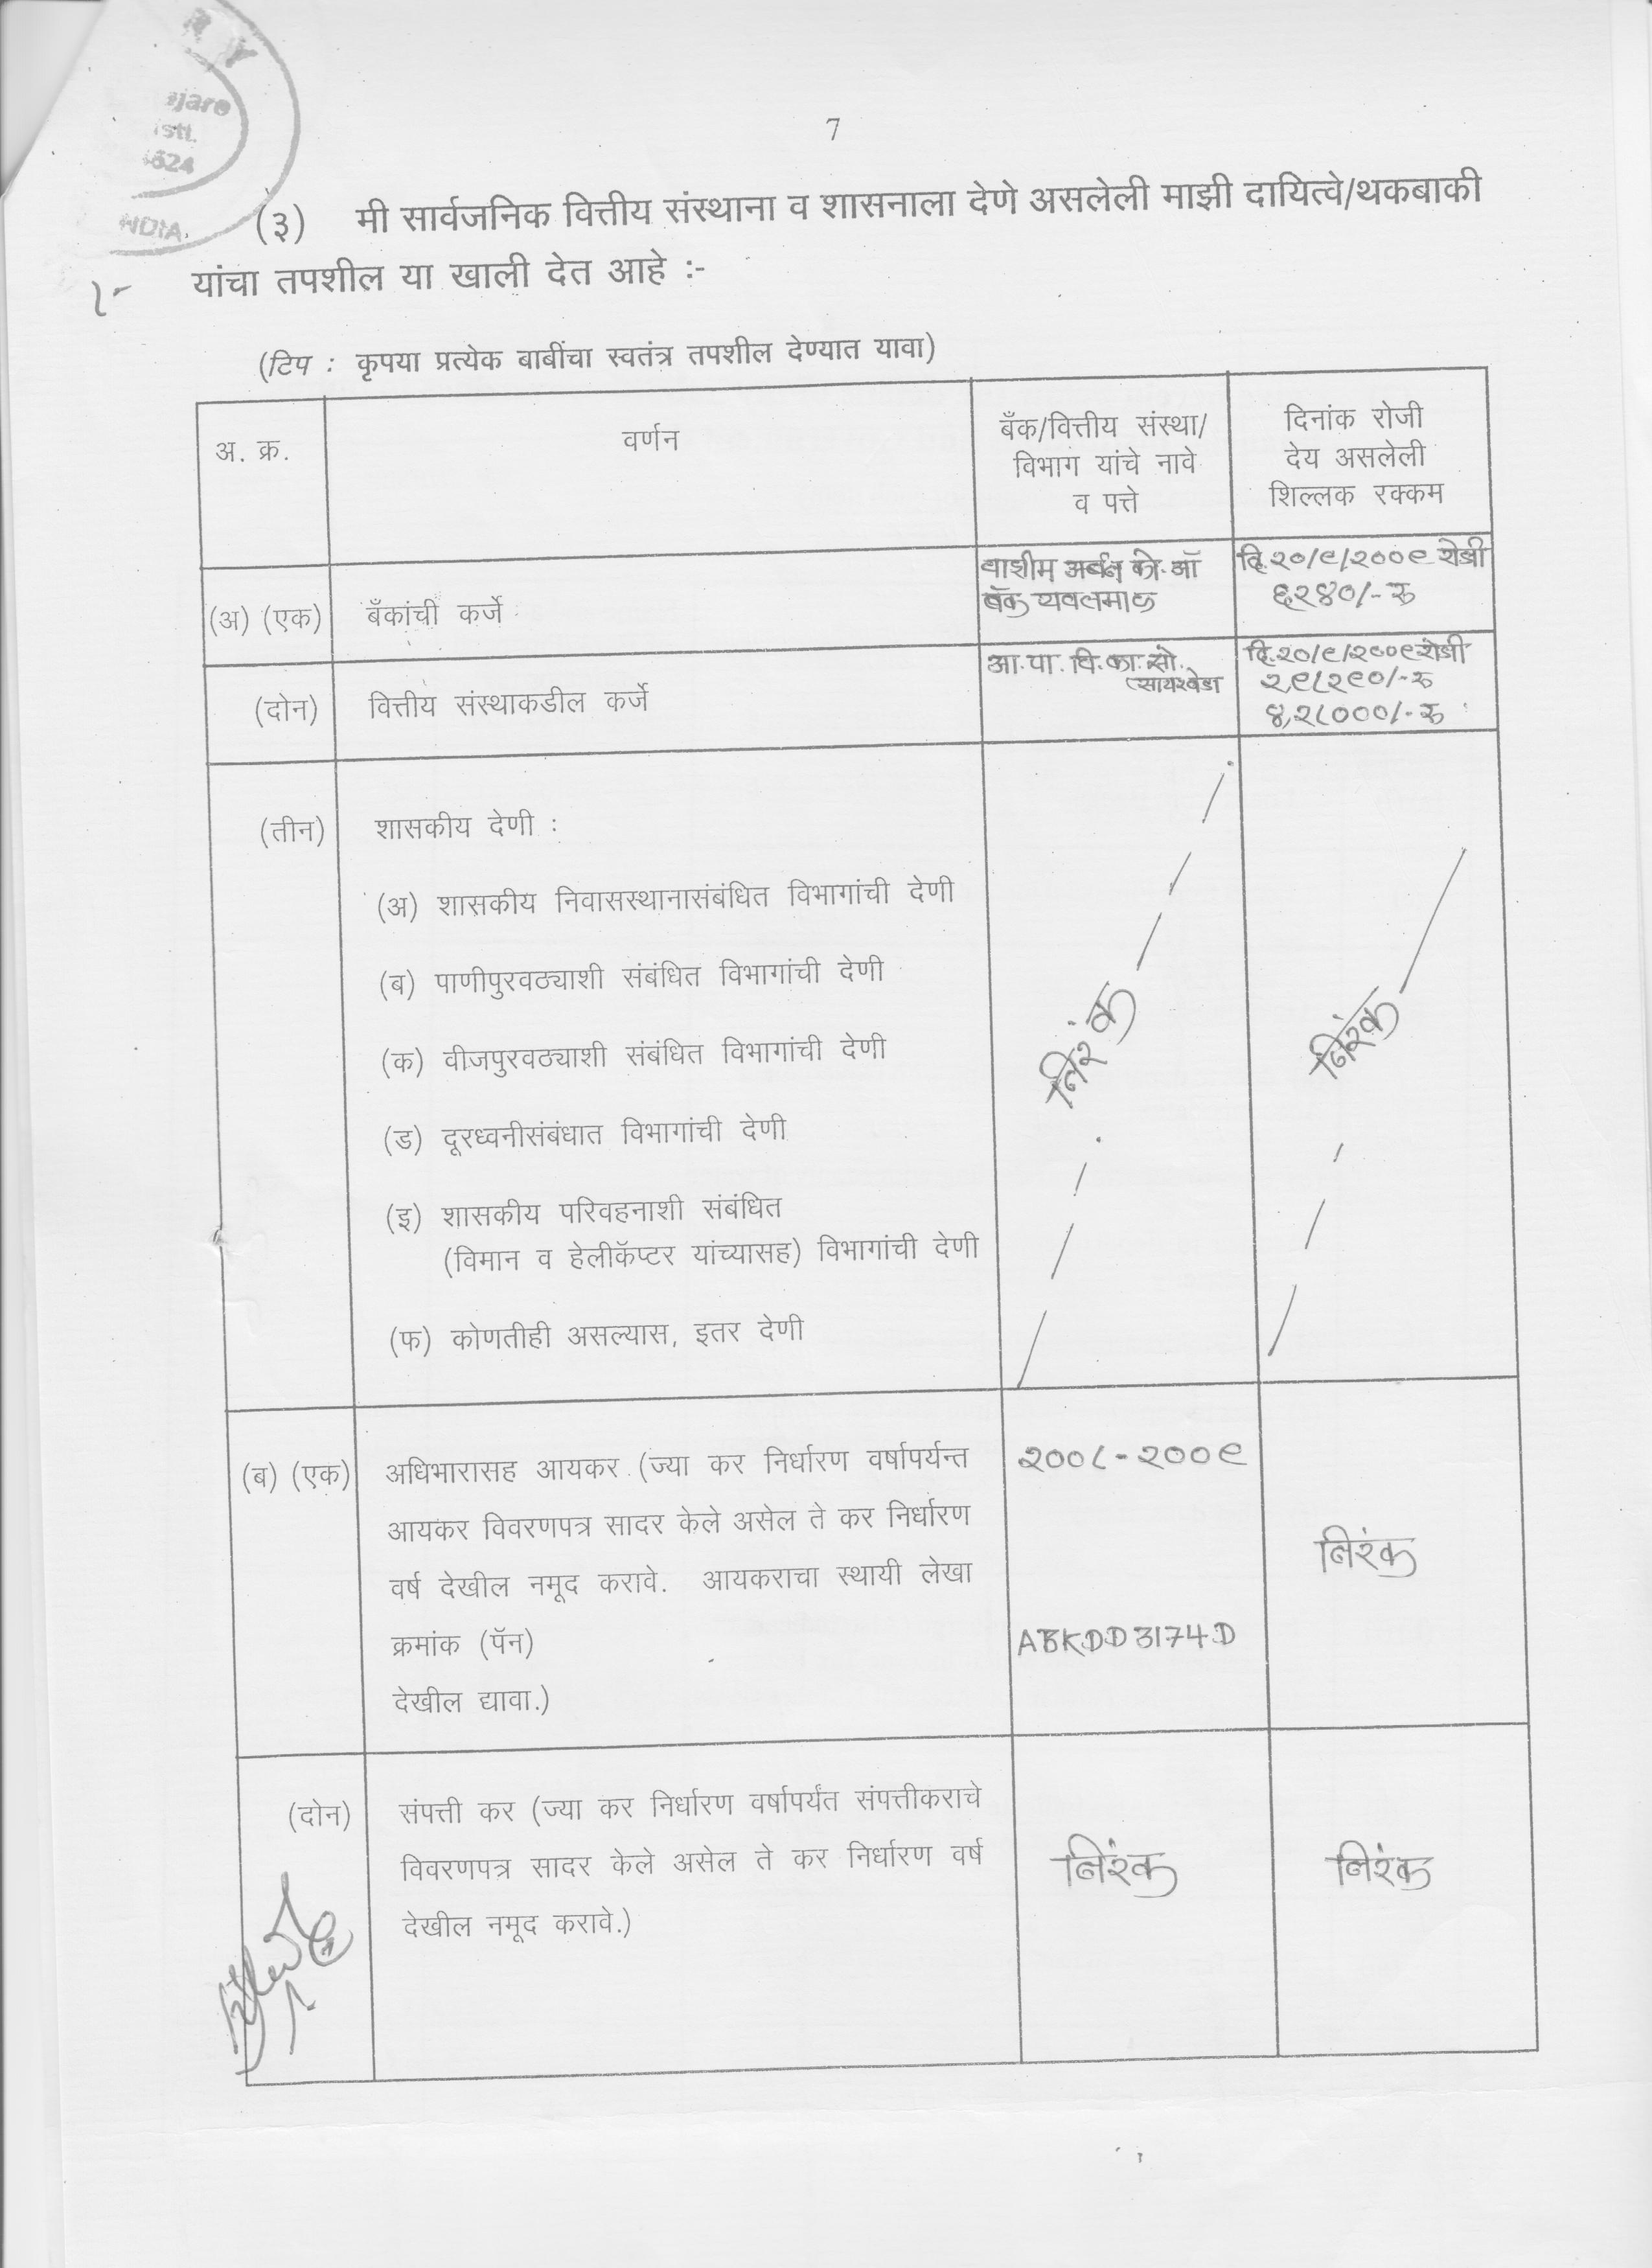 R Y
jare
istt.
624
NDIA.
7
(३) मी सार्वजनिक वित्तीय संस्थाना व शासनाला देणे असलेली माझी दायित्वे/थकबाकी
यांचा तपशील या खाली देत आहे :-
(टिप : कृपया प्रत्येक बाबींचा स्वतंत्र तपशील देण्यात यावा)
अ. क्र.
वर्णन
बँक/वित्तीय संस्था/
विभाग यांचे नावे
व पत्ते
दिनांक रोजी
देय असलेली
शिल्लक रक्कम
(अ) (एक)
बँकांची कर्जे
वाशीम अर्बन को. ऑ
बँक यवतमाळ
दि.२०/९/२००९ रोजी
६२४०/- रु
(दोन)
वित्तीय संस्थाकडील कर्जे
आ. पा. वि. का. सो.
सायखेडा
दि.२०/९/२००९ रोजी
२,९८२९०/- रु
४,२८०००/- रु
(तीन)
शासकीय देणी :
(अ) शासकीय निवासस्थानासंबंधित विभागांची देणी
(ब) पाणीपुरवठ्याशी संबंधित विभागांची देणी
(क) वीजपुरवठ्याशी संबंधित विभागांची देणी
(ड) दूरध्वनीसंबंधात विभागांची देणी
(इ) शासकीय परिवहनाशी संबंधित
(विमान व हेलीकॅप्टर यांच्यासह) विभागांची देणी
(फ) कोणतीही असल्यास, इतर देणी
निरंक
निरंक
(ब) (एक)
अधिभारासह आयकर (ज्या कर निर्धारण वर्षापर्यन्त
आयकर विवरणपत्र सादर केले असेल ते कर निर्धारण
वर्ष देखील नमूद करावे. आयकराचा स्थायी लेखा
क्रमांक (पॅन)
देखील द्यावा.)
२००८-२००९
ABKDD3174D
निरंक
(दोन)
संपत्ती कर (ज्या कर निर्धारण वर्षापर्यंत संपत्तीकराचे
विवरणपत्र सादर केले असेल ते कर निर्धारण वर्ष
देखील नमूद करावे.)
निरंक
निरंक